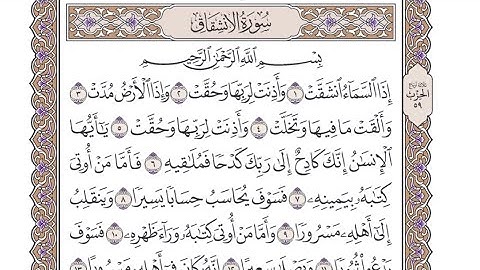 سُورَةُ الانشِقَاقِ
بِسْمِ اللَّهِ الرَّحْمَٰنِ الرَّحِيمِ
إِذَا السَّمَاءُ انشَقَّتْ ١ وَأَذِنَتْ لِرَبِّهَا وَحُقَّتْ ٢ وَإِذَا الْأَرْضُ مُدَّتْ ٣
وَأَلْقَتْ مَا فِيهَا وَتَخَلَّتْ ٤ وَأَذِنَتْ لِرَبِّهَا وَحُقَّتْ ٥ يَٰأَيُّهَا
الْإِنسَٰنُ إِنَّكَ كَادِحٌ إِلَىٰ رَبِّكَ كَدْحًا فَمُلَٰقِيهِ ٦ فَأَمَّا مَنْ أُوتِيَ
كِتَٰبَهُ بِيَمِينِهِ ٧ فَسَوْفَ يُحَاسَبُ حِسَابًا يَسِيرًا ٨ وَيَنقَلِبُ
إِلَىٰ أَهْلِهِ مَسْرُورًا ٩ وَأَمَّا مَنْ أُوتِيَ كِتَٰبَهُ وَرَاءَ ظَهْرِهِ ١٠ فَسَوْفَ
يَدْعُوا ثُبُورًا ١١ وَيَصْلَىٰ سَعِيرًا ١٢ إِنَّهُ كَانَ فِي أَهْلِهِ مَسْرُورًا ١٣
الحِزْب
٥٩